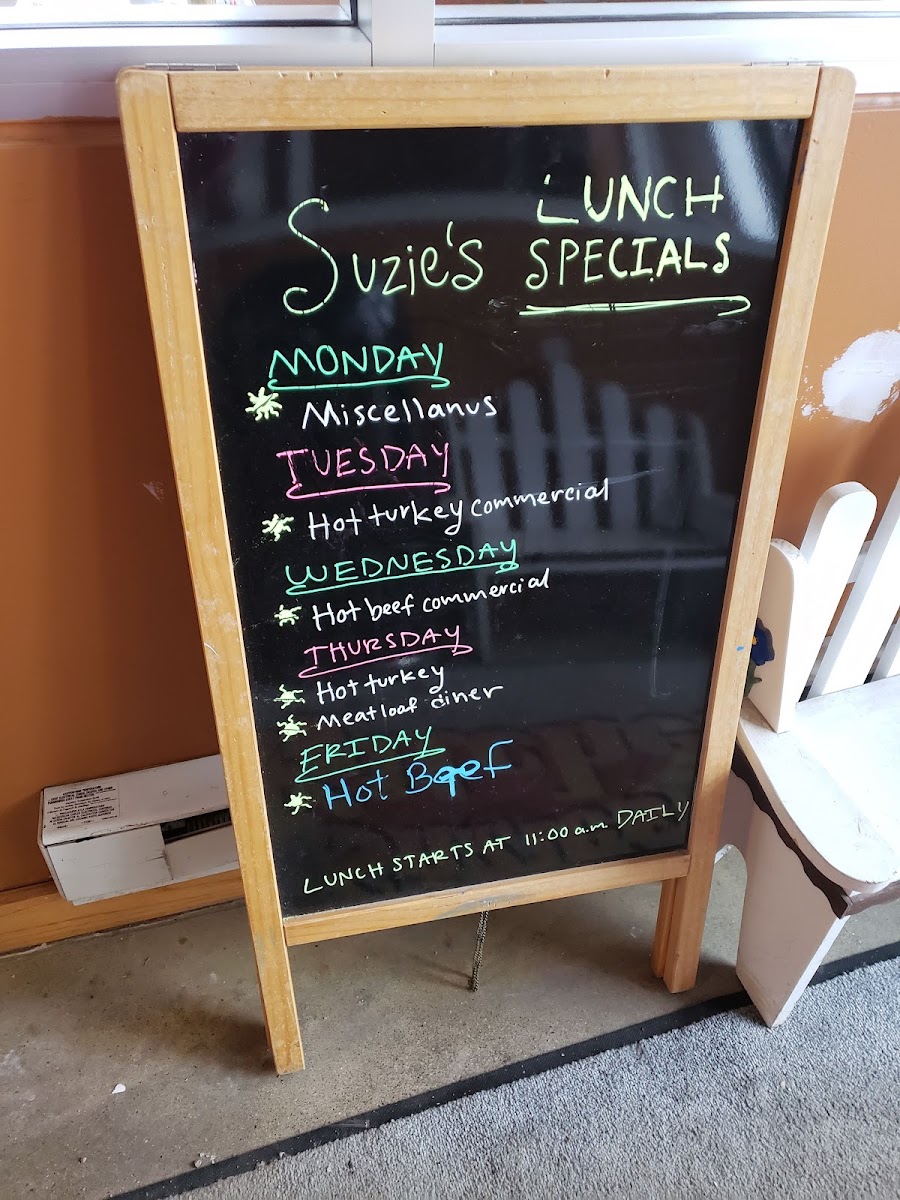 Suzie's LUNCH
SPECIALS
MONDAY
Miscellanus
TUESDAY
Hot turkey commercial
WEDNESDAY
Hot beef commercial
THURSDAY
Hot turkey
Meatloaf diner
FRIDAY
Hot Beef
LUNCH STARTS AT 11:00 a.m. DAILY